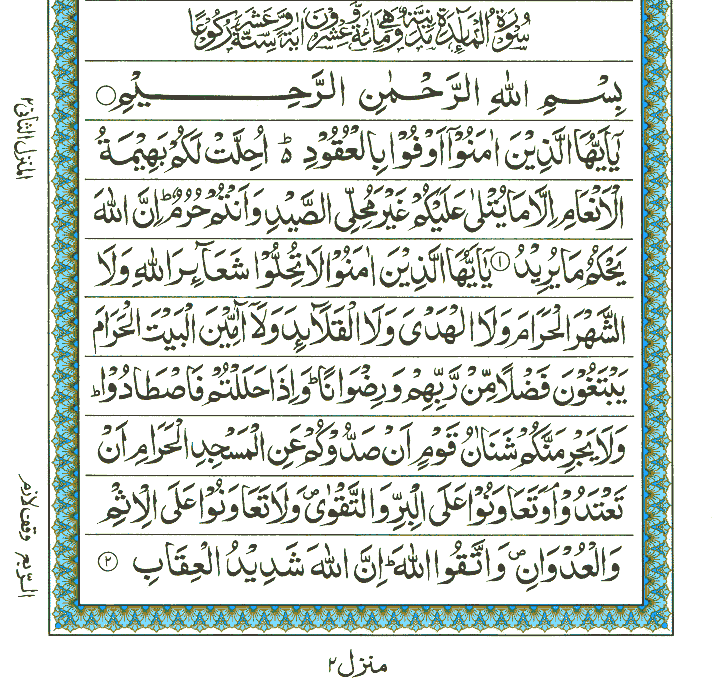 سُوْرَةُ الْمَآئِدَةِ مَدَنِيَّةٌ وَّهِيَ مِائَةٌ وَّعِشْرُوْنَ اٰيَةً وَّسِتَّةَ عَشَرَ رُكُوْعًا
بِسْمِ اللهِ الرَّحْمٰنِ الرَّحِيْمِ ○
يٰۤاَيُّهَا الَّذِيْنَ اٰمَنُوْۤا اَوْفُوْا بِالْعُقُوْدِ ؕ اُحِلَّتْ لَكُمْ بَهِيْمَةُ
الْاَنْعَامِ اِلَّا مَا يُتْلٰى عَلَيْكُمْ غَيْرَ مُحِلِّى الصَّيْدِ وَاَنْتُمْ حُرُمٌ ؕ اِنَّ اللهَ
يَحْكُمُ مَا يُرِيْدُ ۝۱ يٰۤاَيُّهَا الَّذِيْنَ اٰمَنُوْا لَا تُحِلُّوْا شَعَآئِرَ اللهِ وَلَا
الشَّهْرَ الْحَرَامَ وَلَا الْهَدْىَ وَلَا الْقَلَآئِدَ وَلَاۤ آٰمِّيْنَ الْبَيْتَ الْحَرَامَ
يَبْتَغُوْنَ فَضْلًا مِّنْ رَّبِّهِمْ وَرِضْوَانًا ؕ وَاِذَا حَلَلْتُمْ فَاصْطَادُوْا ؕ
وَلَا يَجْرِمَنَّكُمْ شَنَاٰنُ قَوْمٍ اَنْ صَدُّوْكُمْ عَنِ الْمَسْجِدِ الْحَرَامِ اَنْ
تَعْتَدُوْا ۘ وَتَعَاوَنُوْا عَلَى الْبِرِّ وَالتَّقْوٰى ۪ وَلَا تَعَاوَنُوْا عَلَى الْاِثْمِ
وَالْعُدْوَانِ ۪ وَاتَّقُوا اللهَ ؕ اِنَّ اللهَ شَدِيْدُ الْعِقَابِ ۝۲
المنزل الثانى ۲
وقف لازم
الربع
منزل ۲